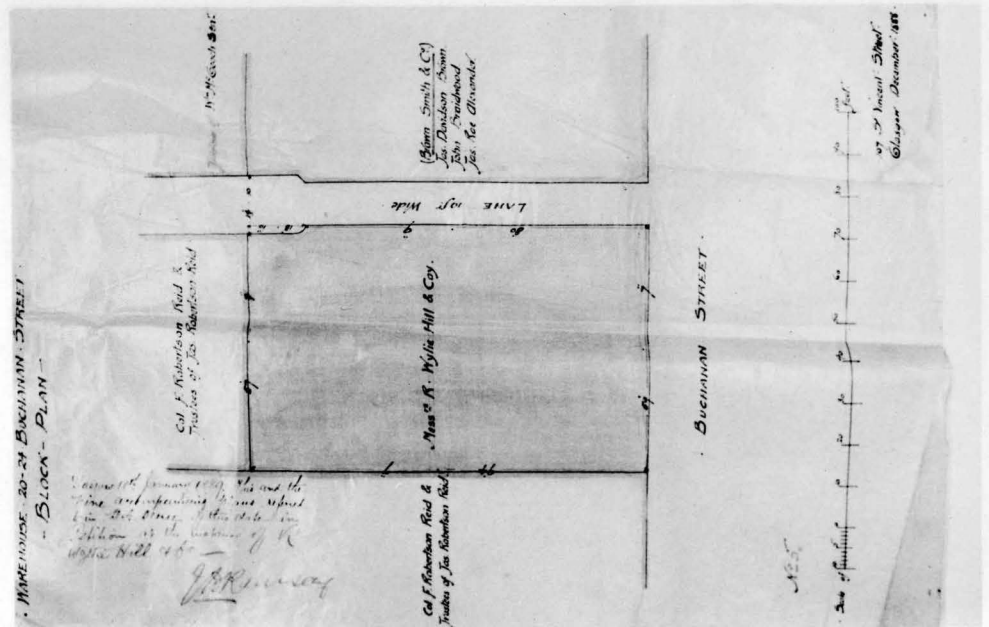 WAREHOUSE 20-24 BUCHANAN STREET.
- BLOCK - PLAN -
Col F. Robertson Reid &
Trustees of Jas Robertson Reid
Wm McGeoch Senr.
(Brown Smith & Co)
Jas. Davidson Brown
John Braidwood
Jas. Rae Alexander
LANE 10 ft Wide
Messrs R. Wylie Hill & Coy.
Col F. Robertson Reid &
Trustees of Jas Robertson Reid.
BUCHANAN STREET.
January 1889. This and the
nine accompanying plans
in
Petition at the instance of R
Wylie Hill & Co —
Ramsay
No 5.
Scale of
feet
107 St Vincent Street
Glasgow December 1888.